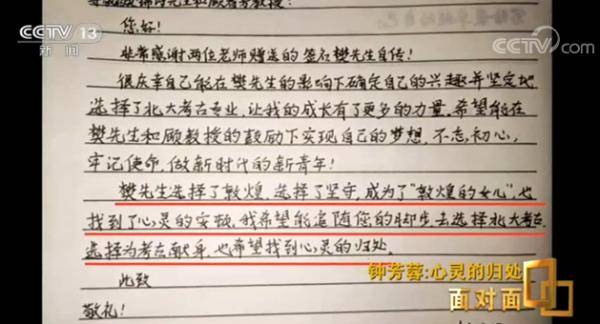 CCTV 13
新闻
CCTV.com
您好!
非常感谢两位老师赠送的签名樊先生自传!
很庆幸自己能在樊先生的影响下确定自己的兴趣并坚定地
选择了北大考古专业,让我的成长有了更多的力量。希望能在
樊先生和顾教授的鼓励下实现自己的梦想,不忘初心,
牢记使命,做新时代的新青年!
樊先生选择了敦煌,选择了坚守,成为了“敦煌的女儿”,也
找到了心灵的安顿。我希望能追随您的脚步去选择北大考古
选择为考古献身,也希望找到心灵的归处。
此致
敬礼!
钟芳蓉:心灵的归处
面对面